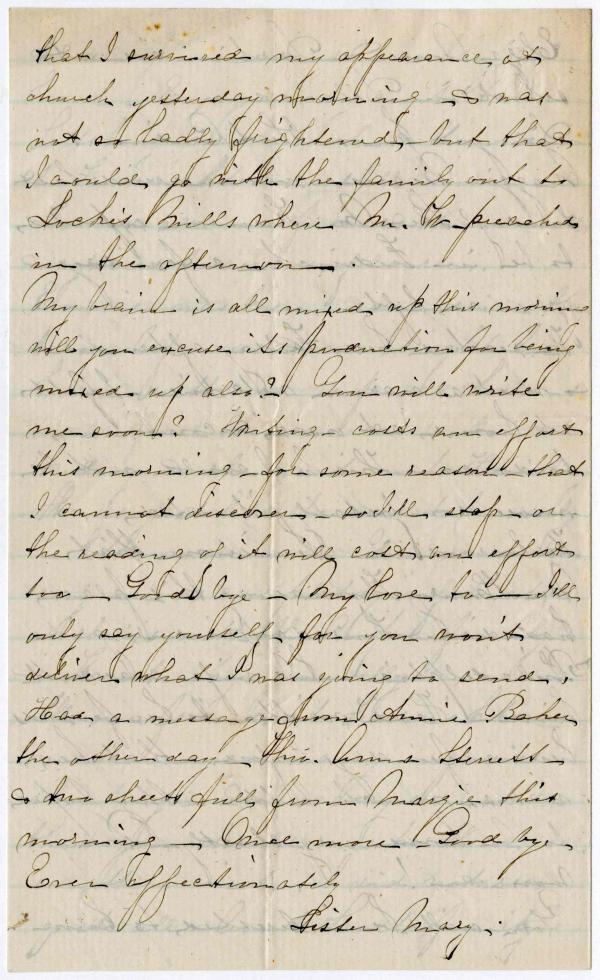 that I survived my appearance at
church yesterday morning - & was
not so badly frightened - but that
I could go with the family out to
Lock's Mills where Mr. W - preached
in the afternoon - .
My brain is all mixed up this morning
will you excuse its production for being
mixed up also? You will write
me soon? Writing - costs an effort
this morning - for some reason - that
I cannot discover - so I'll stop - or
the reading of it will cost an effort
too - Good bye - My love to - I'll
only say yourself, for you won't
deliver what I was going to send.
Had a message from Annie Baker
the other day - thro. Anna Sterrett -
& two sheets full from Margie this
morning - Once more - Good bye.
Ever affectionately
Sister Mary.